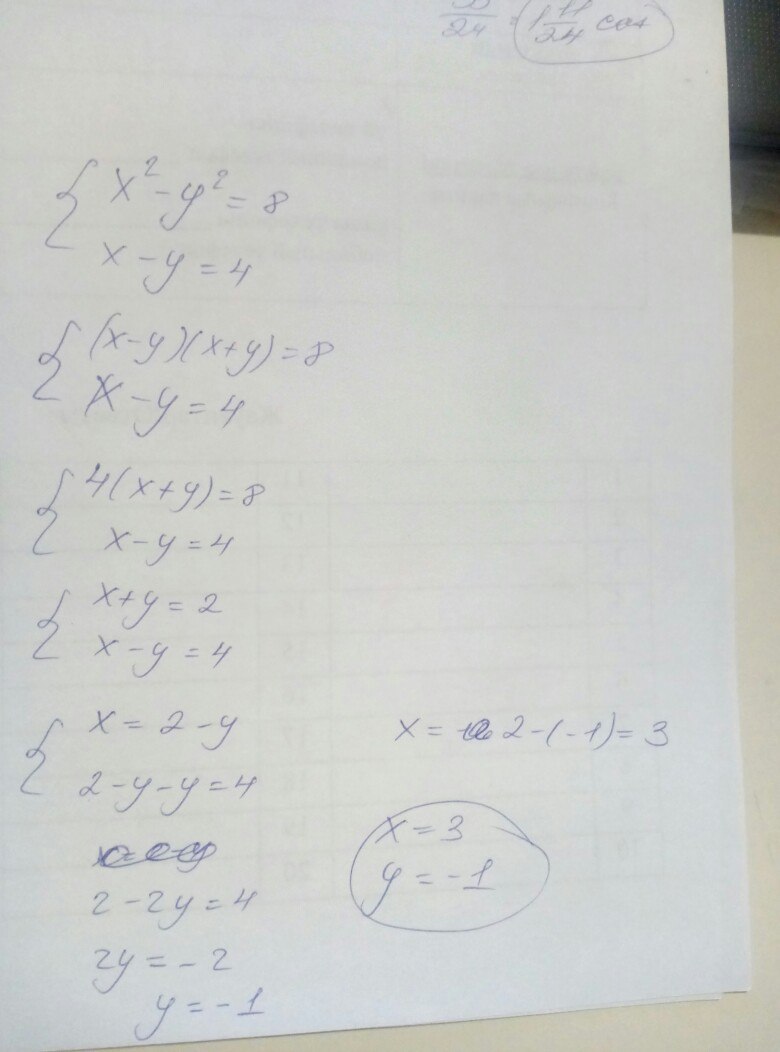 35/24 = 1 11/24 cos
{ x² - y² = 8
x - y = 4
{ (x-y)(x+y) = 8
x - y = 4
{ 4(x+y) = 8
x - y = 4
{ x+y = 2
x - y = 4
{ x = 2 - y
2 - y - y = 4
2 - 2y = 4
2y = -2
y = -1
x = 2 - (-1) = 3
x = 3
y = -1